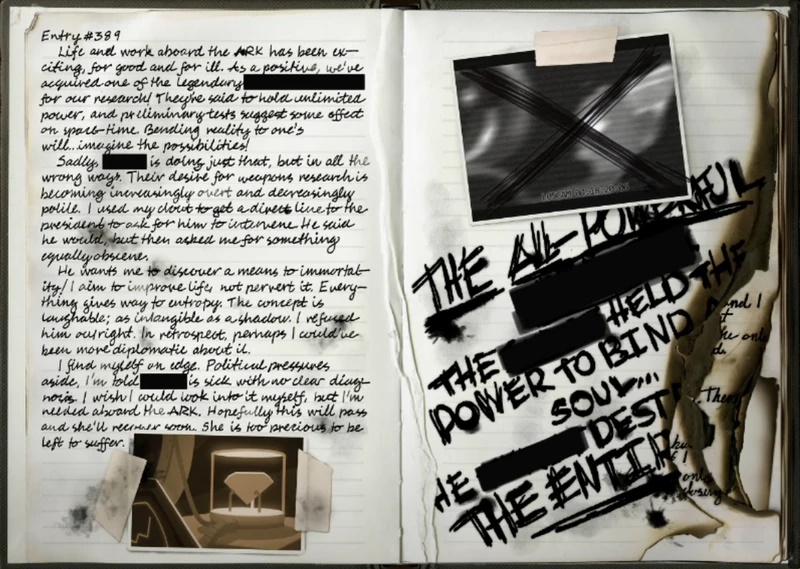 Entry #389
Life and work aboard the ARK has been ex-
citing, for good and for ill. As a positive, we've
acquired one of the legendary
for our research! They're said to hold unlimited
power, and preliminary tests suggest some effect
on space-time. Bending reality to one's
will...imagine the possibilities!
Sadly, is doing just that, but in all the
wrong ways. Their desire for weapons research is
becoming increasingly overt and decreasingly
polite. I used my clout to get a direct line to the
president to ask for him to intervene. He said
he would, but then asked me for something
equally obscene.
He wants me to discover a means to immortal-
ity! I aim to improve life, not pervert it. Every-
thing gives way to entropy. The concept is
laughable; as intangible as a shadow. I refused
him outright. In retrospect, perhaps I could've
been more diplomatic about it.
I find myself on edge. Political pressures
aside, I'm told is sick with no clear diag-
nosis. I wish I could look into it myself, but I'm
needed aboard the ARK. Hopefully this will pass
and she'll recover soon. She is too precious to be
left to suffer.
THE ALL-POWERFUL
THE HELD THE
POWER TO BIND A
SOUL...
HE DEST
THE ENTIR
and I
he only
only